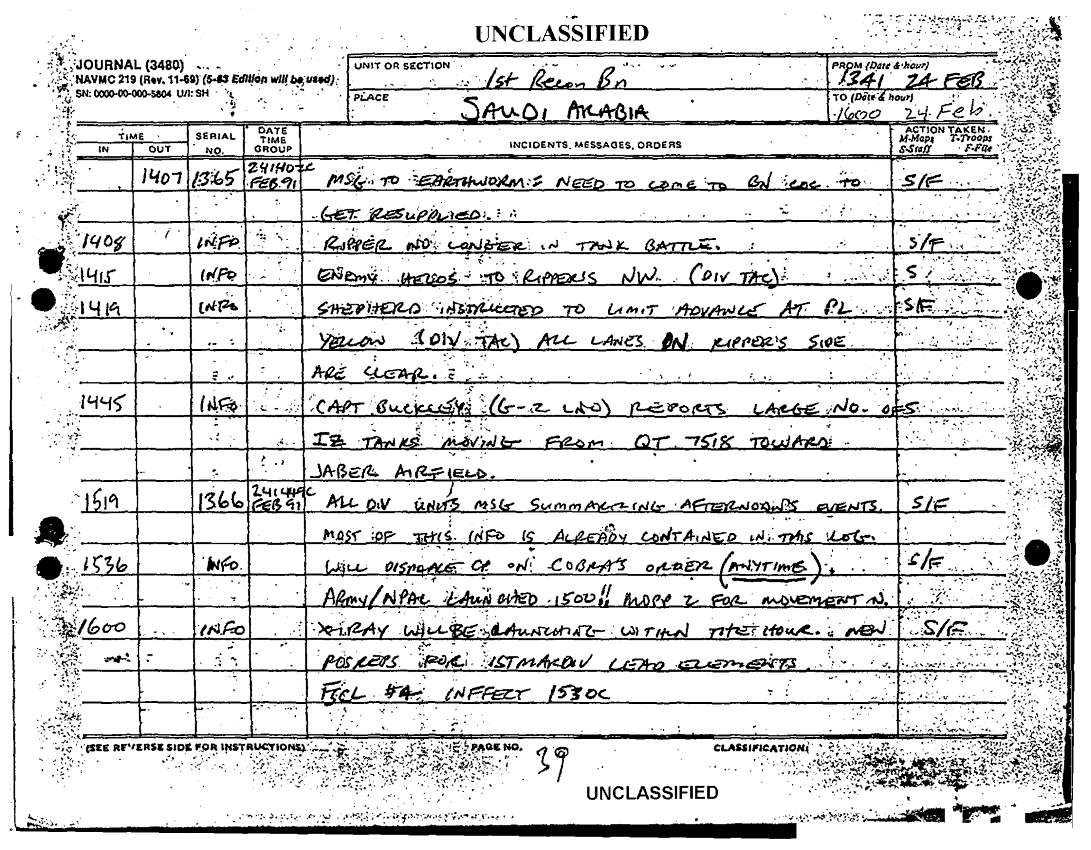 UNCLASSIFIED
JOURNAL (3480)
NAVMC 219 (Rev. 11-69) (5-63 Edition will be used)
SN: 0000-00-000-5804 U/I: SH
UNIT OR SECTION
1st Recon Bn
PLACE
SAUDI ARABIA
FROM (Date & hour)
1341 24 FEB
TO (Date & hour)
1600 24 Feb
TIME
IN OUT
SERIAL NO.
DATE TIME GROUP
INCIDENTS, MESSAGES, ORDERS
ACTION TAKEN
M-Maps T-Troops
S-Staff F-File
1407 1365 241407C FEB 91 MSG TO EARTHWORM: NEED TO COME TO BN COC TO S/F
GET RESUPPLIED.
1408 INFO RIPPER NO LONGER IN TANK BATTLE. S/F
1415 INFO ENEMY HELOS TO RIPPER'S NW. (DIV TAC) S
1419 INFO SHEPHERD INSTRUCTED TO LIMIT ADVANCE AT PL S/F
YELLOW (DIV TAC) ALL LANES ON RIPPER'S SIDE
ARE CLEAR.
1445 INFO CAPT BUCKLEY (G-2 LNO) REPORTS LARGE NO. OF S
IZ TANKS MOVING FROM QT 7518 TOWARD
JABER AIRFIELD.
1519 1366 241449C FEB 91 ALL DIV UNITS MSG SUMMARIZING AFTERNOON'S EVENTS. S/F
MOST OF THIS INFO IS ALREADY CONTAINED IN THIS LOG.
1536 INFO WILL DISPLACE CP ON COBRA'S ORDER (ANYTIME). S/F
ARMY/NPAC LAUNCHED 1500!! MOPP 2 FOR MOVEMENT N.
1600 INFO X-RAY WILL BE LAUNCHING WITHIN THE HOUR. NEW S/F
POSREPS FOR 1STMARDIV LEAD ELEMENTS.
FSCL #4 INFFECT 1530C
(SEE REVERSE SIDE FOR INSTRUCTIONS)
PAGE NO.
39
CLASSIFICATION:
UNCLASSIFIED